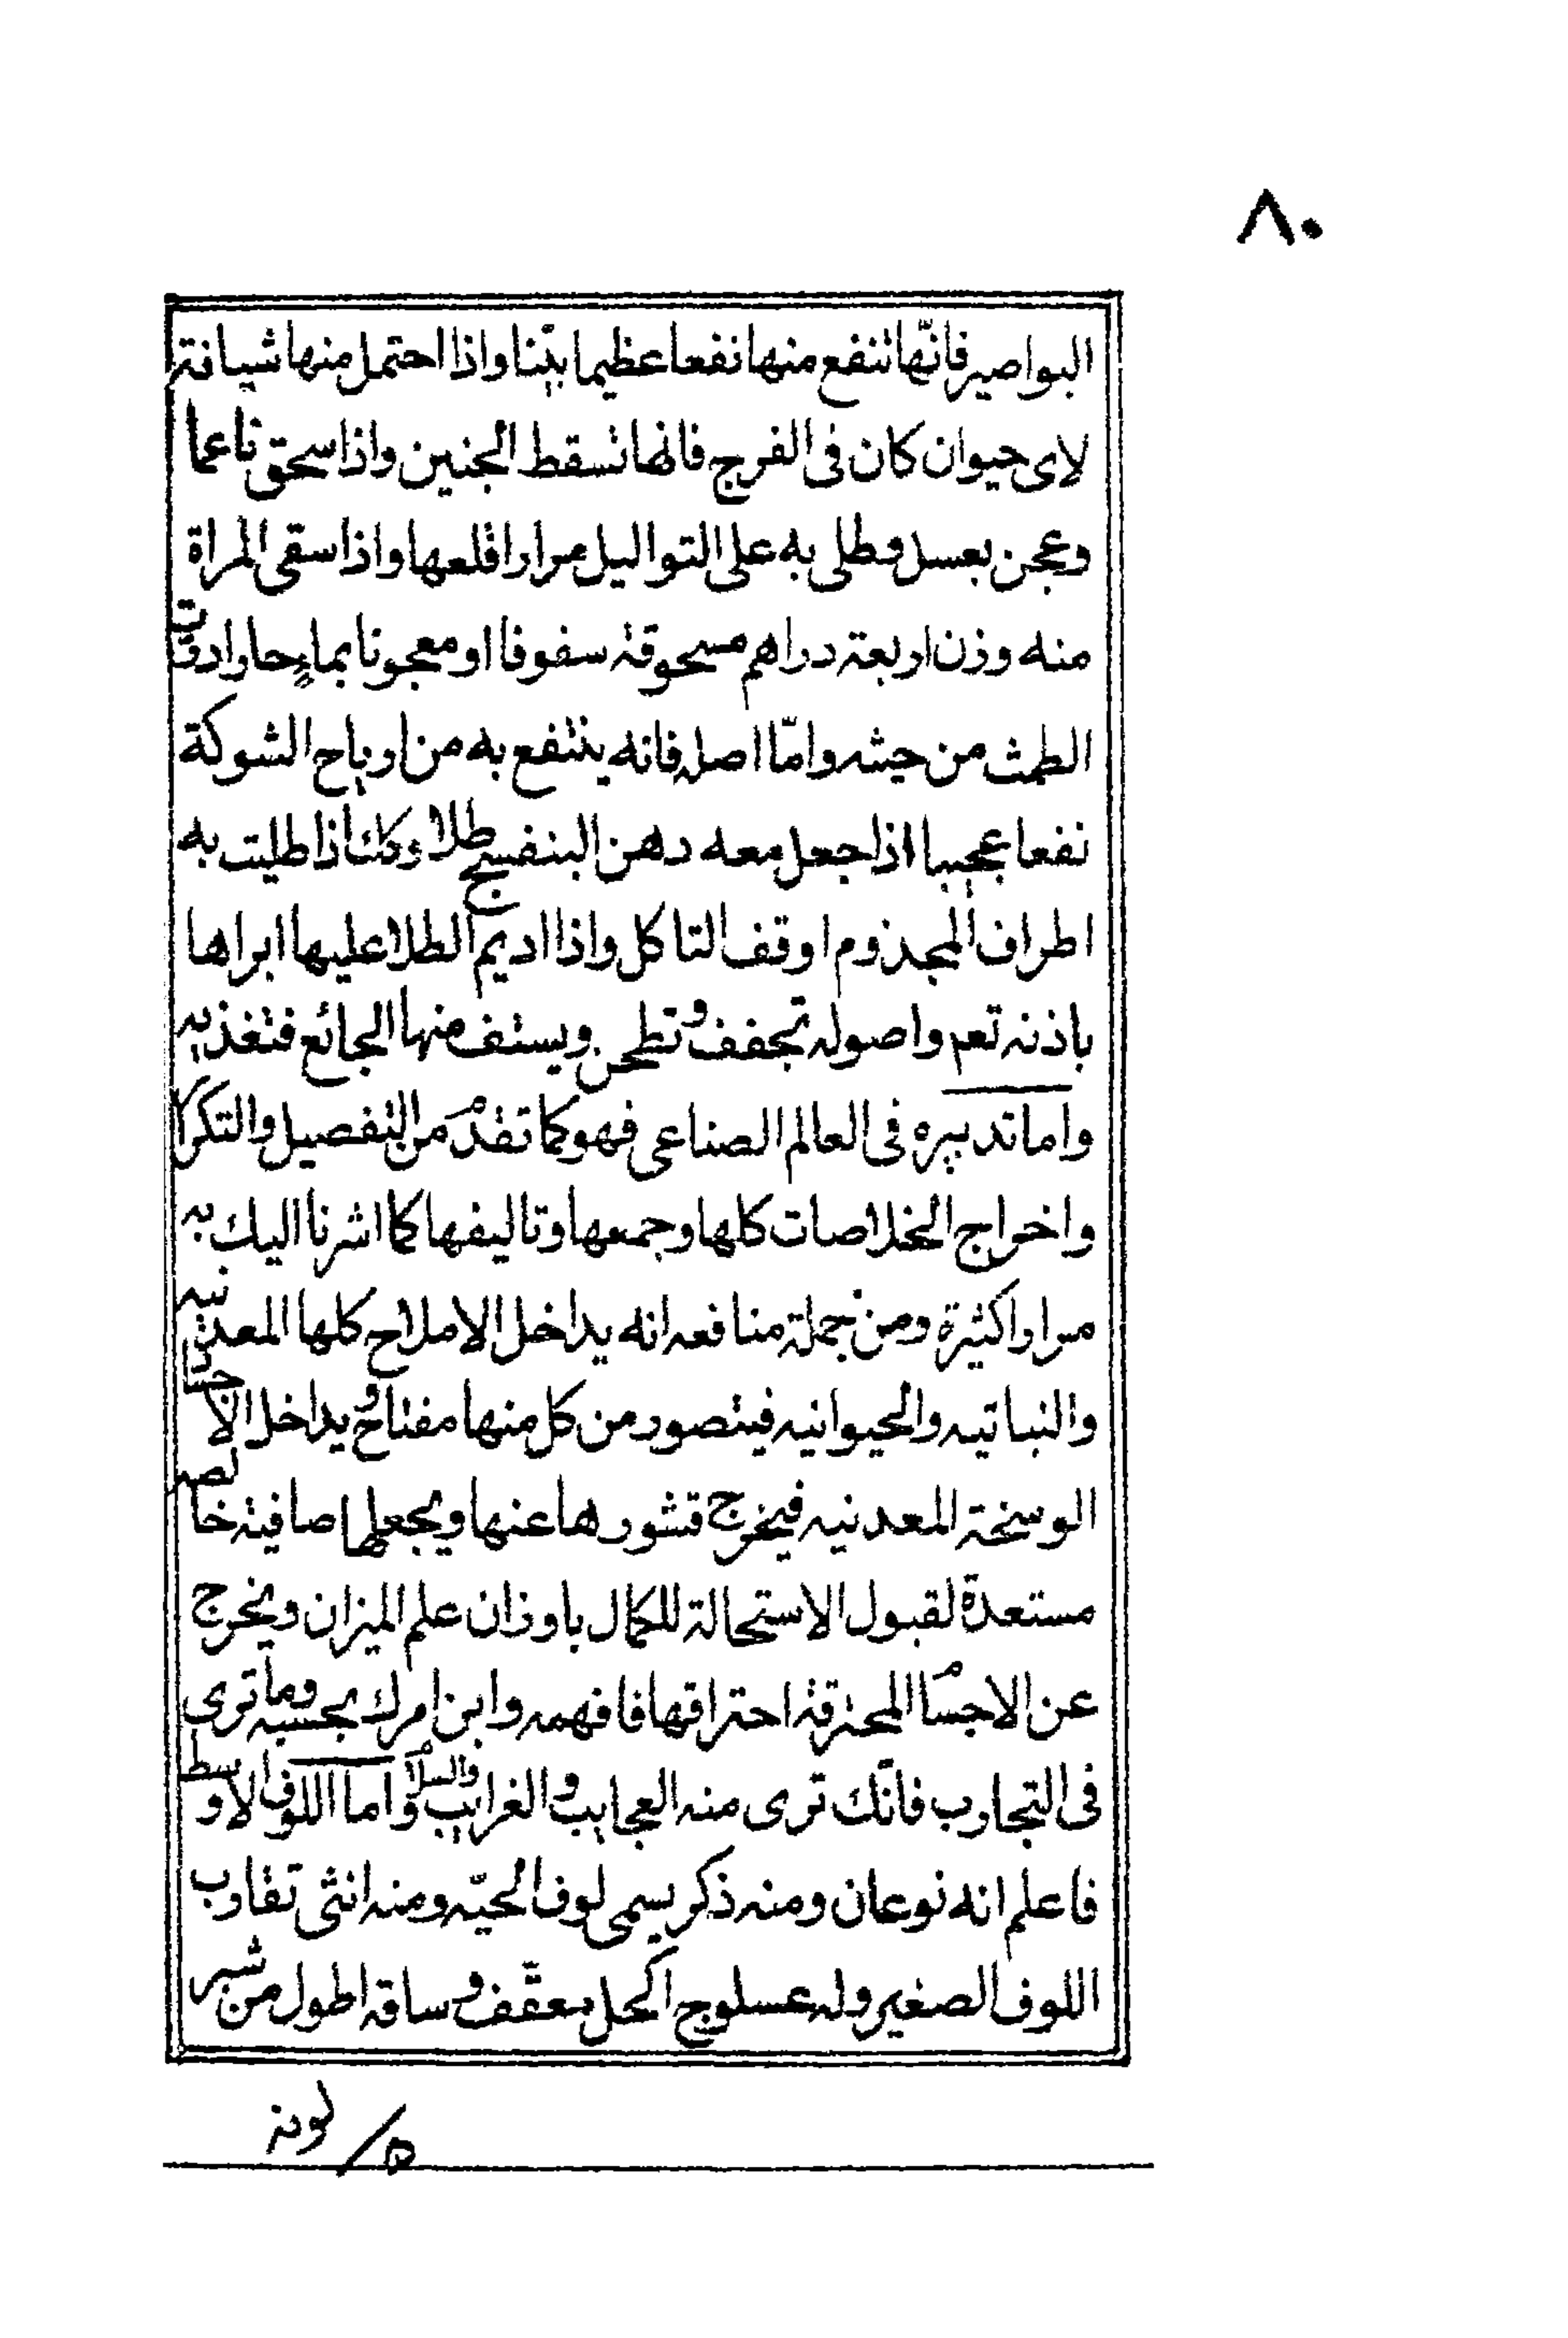 ٨٠
البواصير فانّها تنفع منها نفعا عظيما بيّنا واذا احتمل منها شيافة
لاى حيوان كان فى الفرج فانها تسقط الجنين واذا سحق ناعما
وعجن بعسل وطلى به على التواليل مرارا قلعها واذا سقى المراة
منه وزن اربعة دراهم مسحوقة سفوفا او معجونا بماءٍ حار ادرّت
الطمث من حيثه وامّا اصله فانه ينتفع به من ارياح الشوكة
نفعا عجيبا اذا جعل معه دهن البنفسج طلا وكك اذا طليت به
اطراف المجذوم اوقف التاكل واذا اديم الطلا عليها ابراها
باذنه تعم واصوله تجفف وتطحن ويستف منها الجائع فتغذيه
واما تدبيره فى العالم الصناعى فهو كما تقدم من التفصيل والتكرار
واخراج الخلاصات كلها وجمعها وتاليفها كما اشرنا اليك به
مرارا كثيرة ومن جملة منافعه انه يداخل الاملاح كلها المعدنيه
والنباتيه والحيوانيه فيتصور من كل منها مفتاح ويداخل الاجساد
الوسخة المعدنيه فيخرج قشورها عنها ويجعلها صافية خالصه
مستعدة لقبول الاستحالة للكمال باوزان علم الميزان ويخرج
عن الاجسام المحترقة احتراقها فافهمه وابن امرك بحسبه وما ترى
فى التجارب فانّك ترى منه العجايب والغرايب والسلام واما اللوف الاوسط
فاعلم انه نوعان ومنه ذكر يسمى لوف الحيّه ومنه انثى تقارب
اللوف الصغير وله عسلوج اكحل معقّف وساقه اطول من شبر
لونه